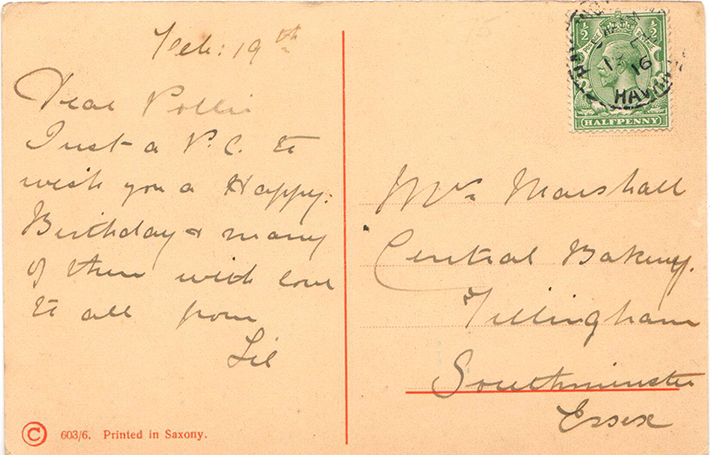 Feb: 19th
Dear Pollie
Just a P.C. to
wish you a Happy.
Birthday & many
of them with love
to all from
Lil
© 603/6. Printed in Saxony.
½ ½
16
HAV
HALFPENNY
Mrs Marshall
Central Bakery.
Tillingham
Southminster
Essex